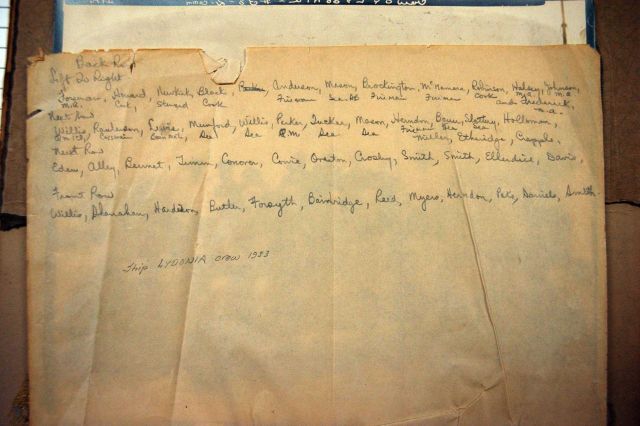 Back Row
Left to Right
Foreman, Howard, Newkirk, Black, Anderson, Mason, Brockington, McNamara, Robinson, Halsey, Johnson,
M.A. Cat, Steward Cook Fireman Sea Fireman Fireman Cook M.A. M.A.
and Frederick,
M.A.
Next Row
Willis, Rawlerson, Mumford, Willis, Parker, Tucker, Mason, Herndon, Slattery, Holloman,
Sea Sea Q.M. Sea Sea Fireman Sea Sea
Miller, Etheridge, Crapple,
Next Row
Eden, Alley, Bennet, Conover, Cowie, Overton, Crosby, Smith, Smith, Davis,
Front Row
Willis, Shanahan, Hardison, Butler, Forsyth, Bainbridge, Reed, Myers, Herndon, Daniels, Smith
Ship LYDONIA crew 1933